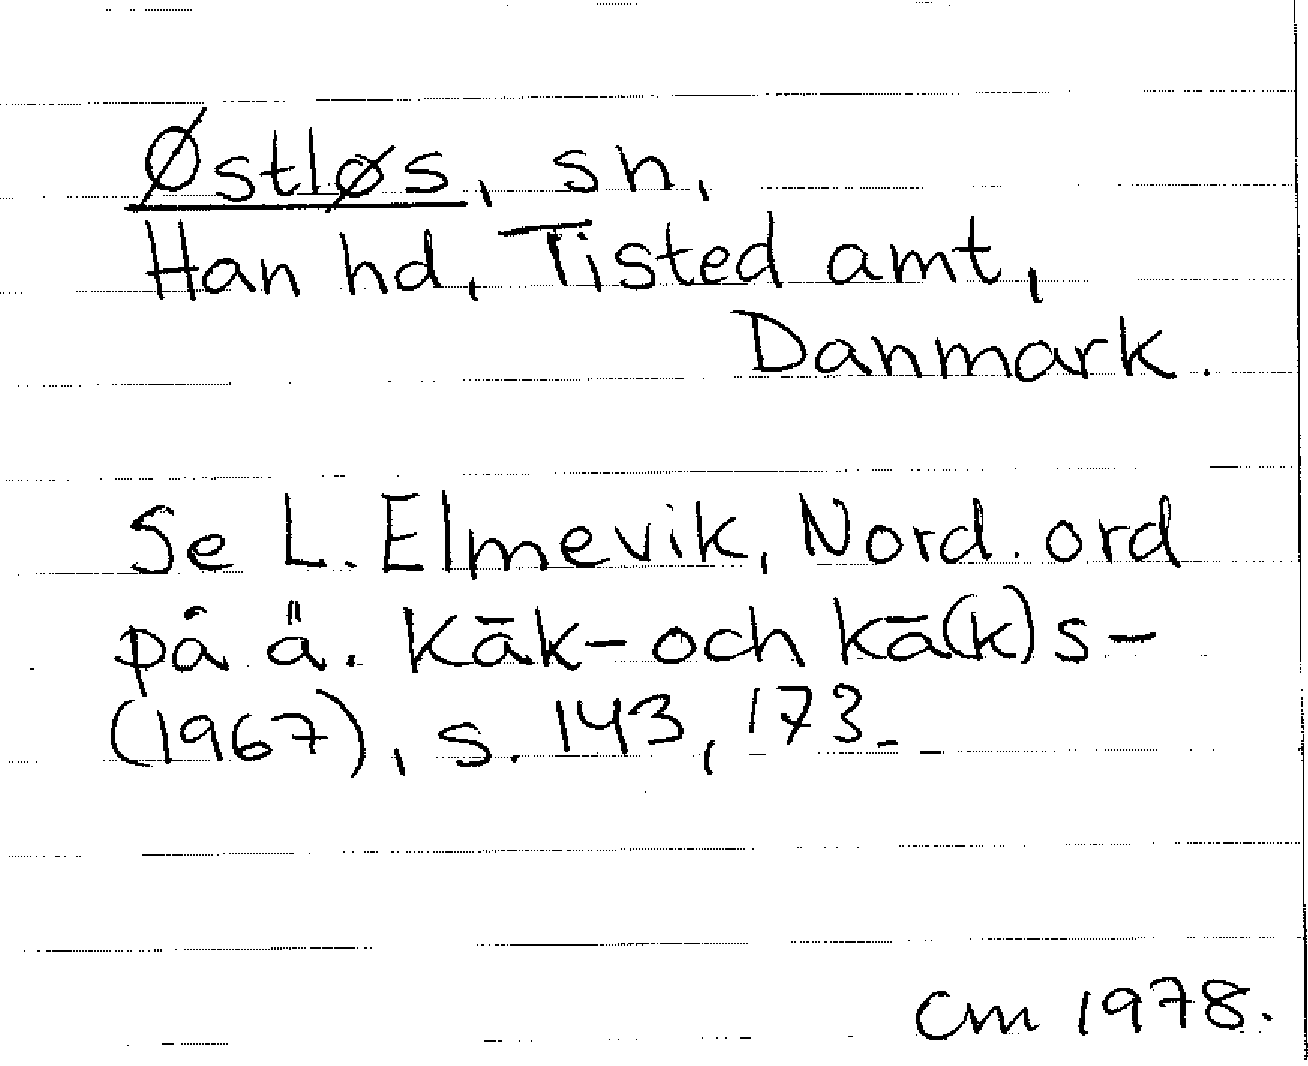 Østløs, sn,
Han hd, Tisted amt,
Danmark.
Se L. Elmevik, Nord. ord
på ä. kāk- och kā(k)s-
(1967), s. 143, 173.
Cm 1978.